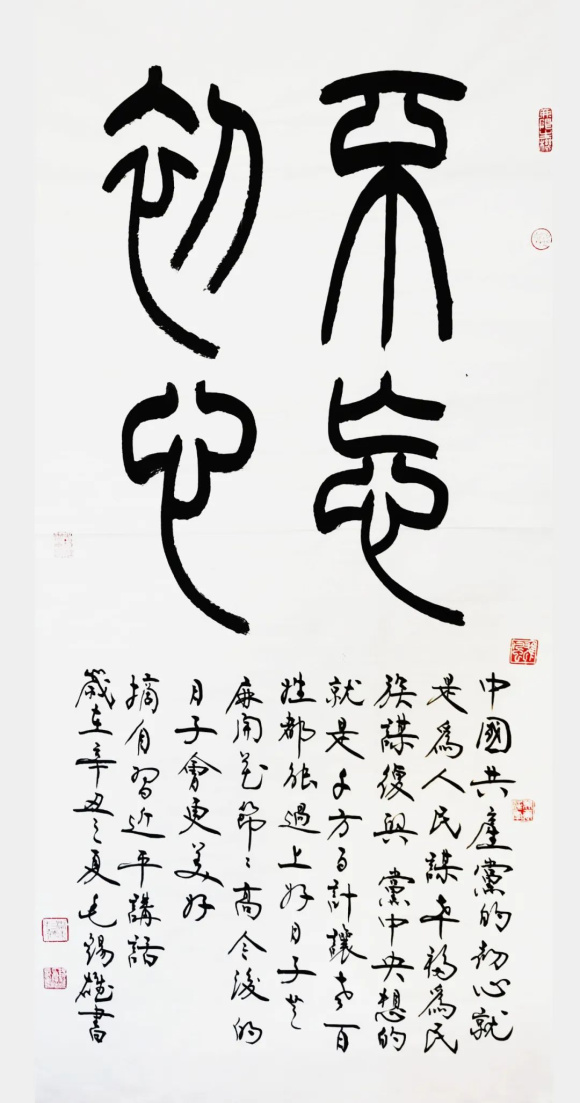 不忘
初心
中國共產黨的初心就
是爲人民謀幸福爲民
族謀復興 黨中央想的
就是千方百計讓老百
姓都能過上好日子芝
麻開花節節高今後的
日子會更美好
摘自習近平講話
歲在辛丑之夏毛錫雄書